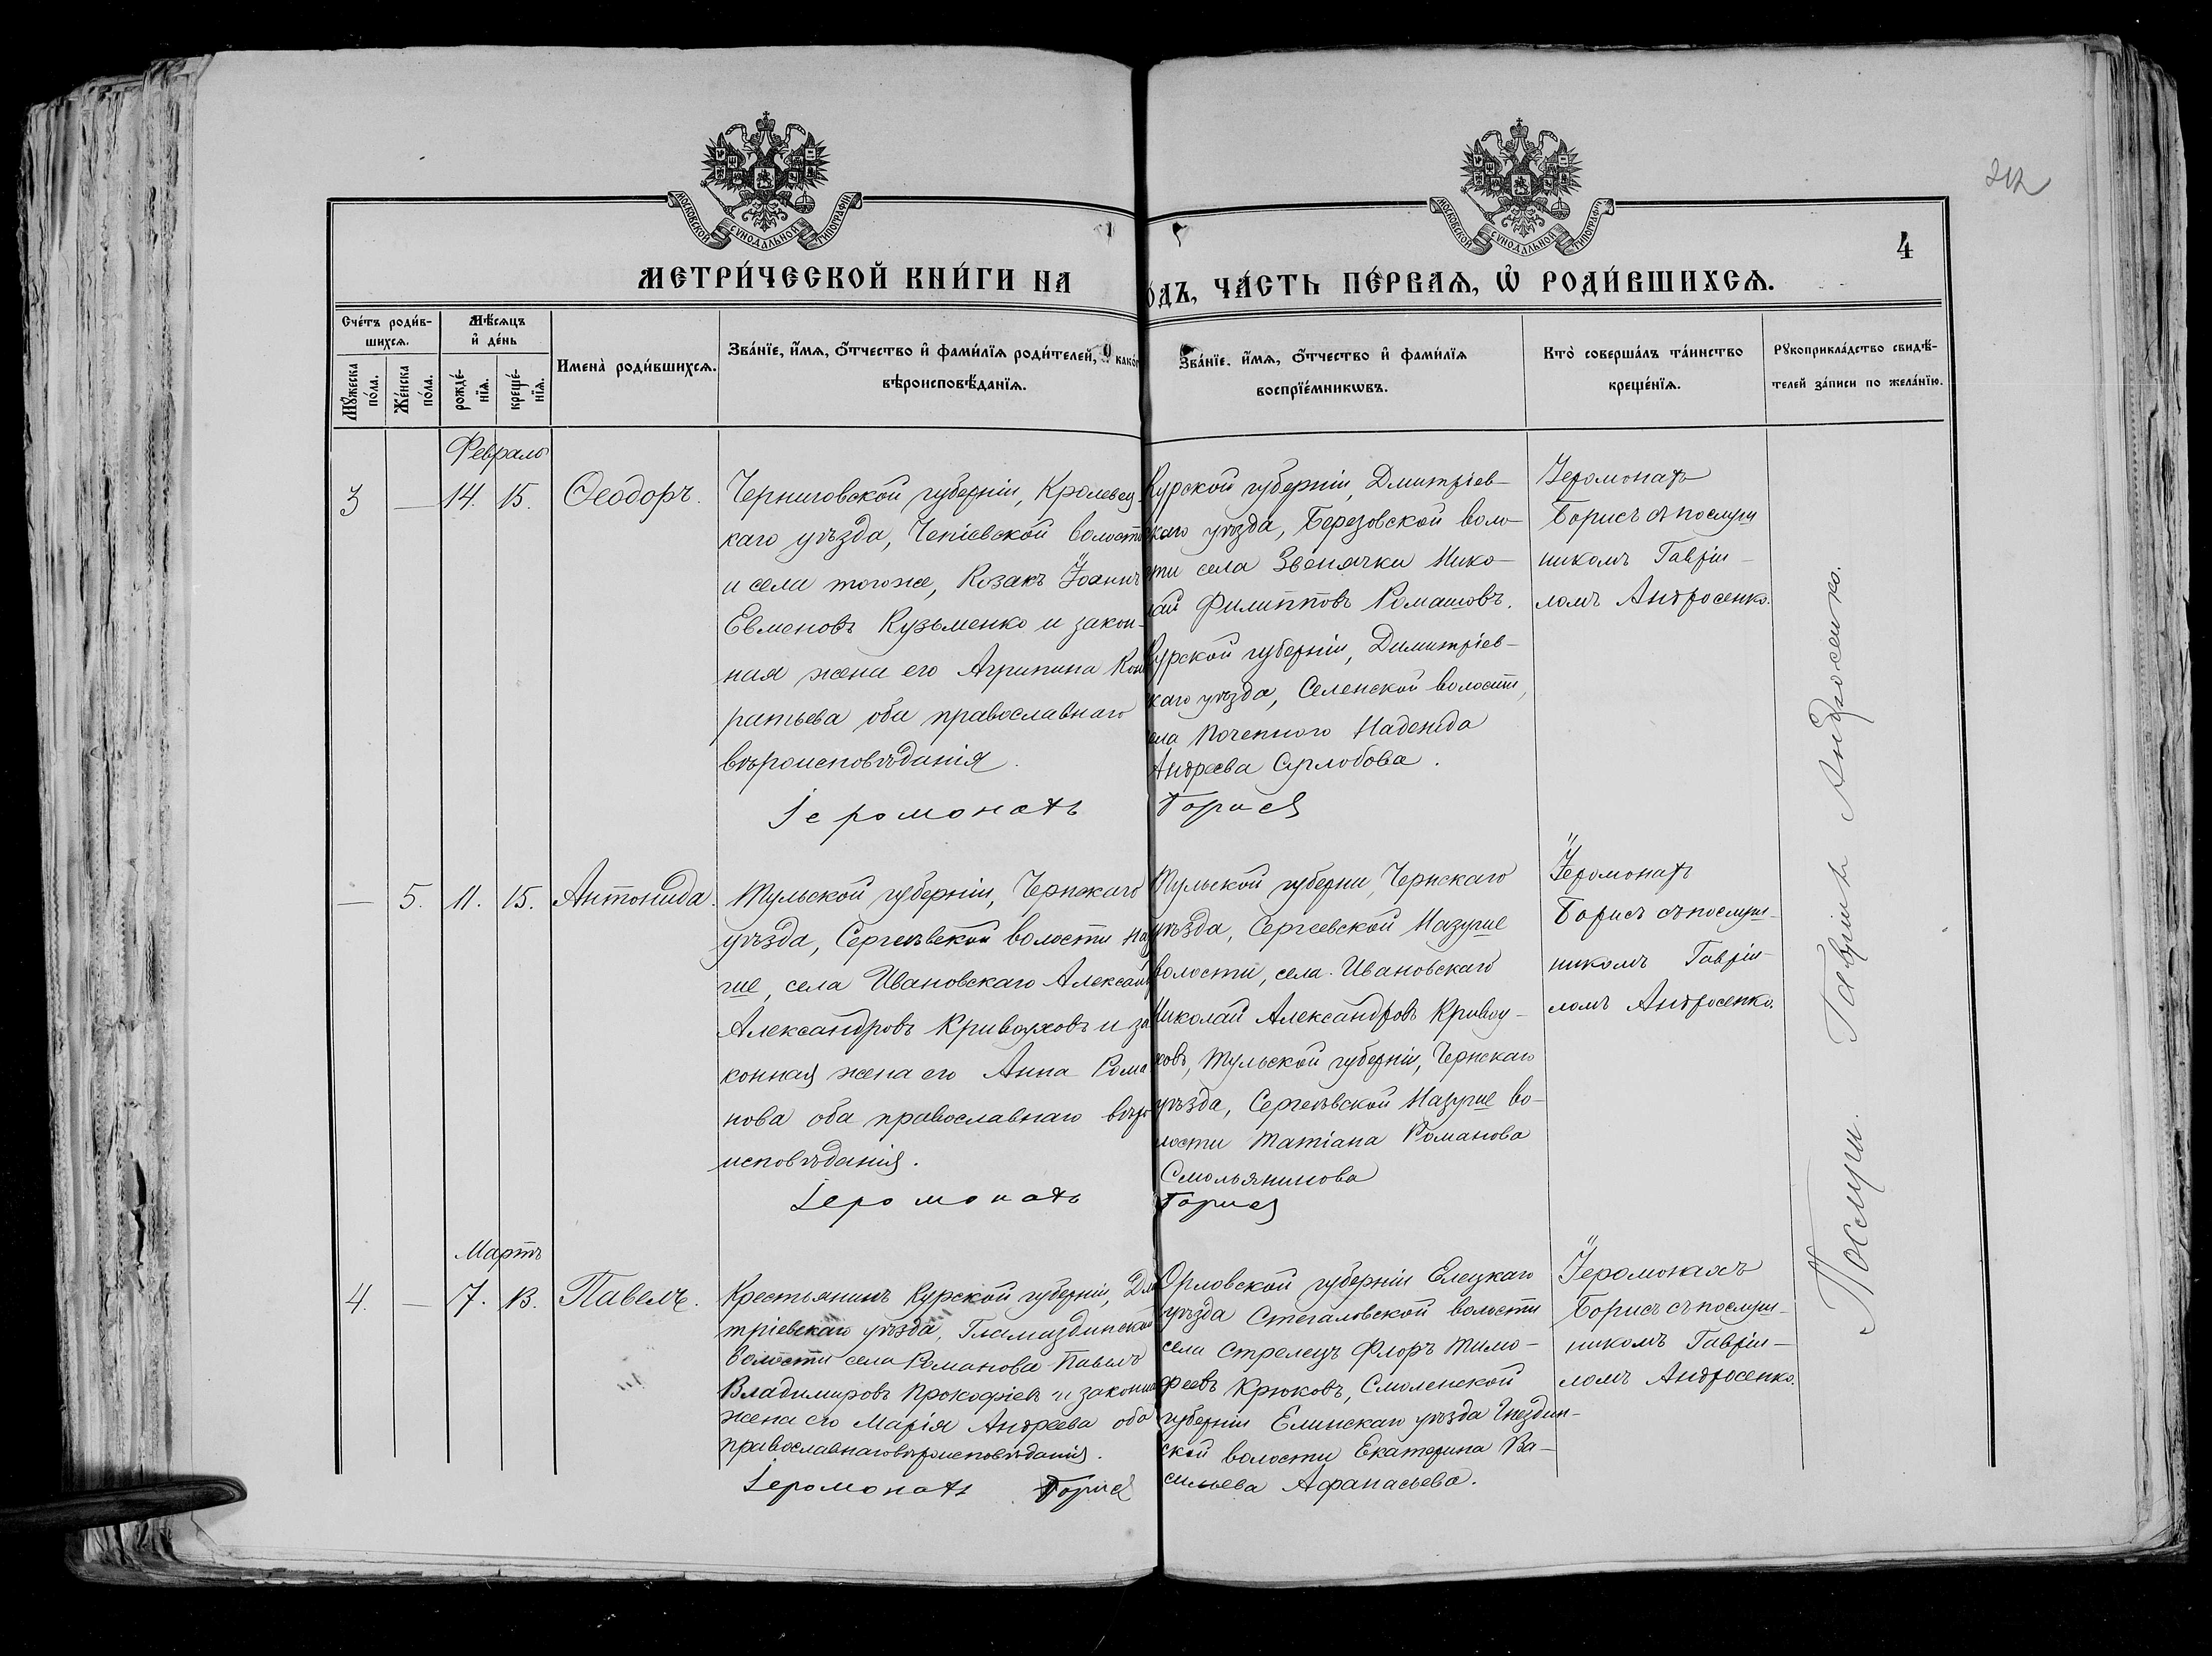 212
МОСКОВСКОЙ СѴНОДАЛЬНОЙ ТИПОГРАФІИ
МОСКОВСКОЙ СѴНОДАЛЬНОЙ ТИПОГРАФІИ
4
МЕТРИ́ЧЕСКОЙ КНИ́ГИ НА
О́ДЪ, ЧА́СТЬ ПЕ́РВАѦ, Ѿ РОДИ́ВШИХСѦ.
Сче́тъ роди́в-
шихсѧ.
Мꙋ́жеска
по́ла.
Же́нска
по́ла.
Мѣ́сѧцъ
и҆ де́нь
рожде́-
нїѧ.
креще́-
нїѧ.
И҆мена̀ роди́вшихсѧ.
Зва́нїе, и҆́мѧ, о҆́тчество и҆ фамилі́ѧ роди́телей, и҆ како́г
вѣроисповѣ́данїѧ.
Зва́нїе, и҆́мѧ, о҆́тчество и҆ фамилі́ѧ
воспрїе́мникѡвъ.
Кто̀ соверша́лъ та́инство
креще́нїѧ.
Рꙋкоприкла́дство свидѣ́-
телей за́писи по жела́нїю.
Февраль
3 — 14. 15. Ѳеодоръ.
Черниговской губерніи, Кролевец-
каго уѣзда, Чепіевской волости
и села тогоже, Козакъ Іоаннъ
Евменовъ Кузьменко и закон-
ная жена его Агрипина Кон
ратьева оба православнаго
вѣроисповѣданія.
Іеромонахъ
Курской губерніи, Дмитріев-
скаго уѣзда, Березовской воло-
сти села Звенячки Нико-
лай Филипповъ Ромашовъ.
Курской губерніи, Димитріев-
скаго уѣзда, Селенской волости,
села Почепного Надежда
Андреева Суглобова.
Борисъ
Іеромонахъ
Борисъ съ послуш
никомъ Гавріи-
ломъ Андросенко.
— 5. 11. 15. Антонида.
Тульской губерніи, Чернскаго
уѣзда, Сергіевской волости на
гие, села Ивановскаго Александръ
Александровъ Кривоуховъ и за
конная жена его Анна Рома
нова оба православнаго вѣро
исповѣданія.
Іеромонахъ
Тульской губерни, Чернскаго
уѣзда, Сергеевской Назугие
волости, села Ивановскаго
Николай Александровъ Кривоу-
ховъ, Тульской губерніи, Чернскаго
уѣзда, Сергіевской Назугие во-
лости Татіана Романова
Смольянинова
Борисъ
Іеромонахъ
Борисъ съ послуш-
никомъ Гавріи-
ломъ Андросенко.
Мартъ
4. — 7. 13. Павелъ.
Крестьянинъ Курской губерніи, Дми
тріевскаго уѣзда, Гламаздинской
волости села Романова Павелъ
Владимировъ Прокофіевъ и законная
жена его Марія Андреева оба
православнаго вѣроисповѣданія.
Іеромонахъ Борисъ
Орловской губерніи Елецкаго
уѣзда Стегаловской волости
села Стрелецъ Флоръ Тимо-
феевъ Крюковъ, Смоленской
губерніи Елинскаго уѣзда Гнездин-
ской волости Екатерина Ва-
сильева Афанасьева.
Іеромонахъ
Борисъ съ послуш-
никомъ Гавріи-
ломъ Андросенко.
Послуш. Гавріилъ Андросенко.